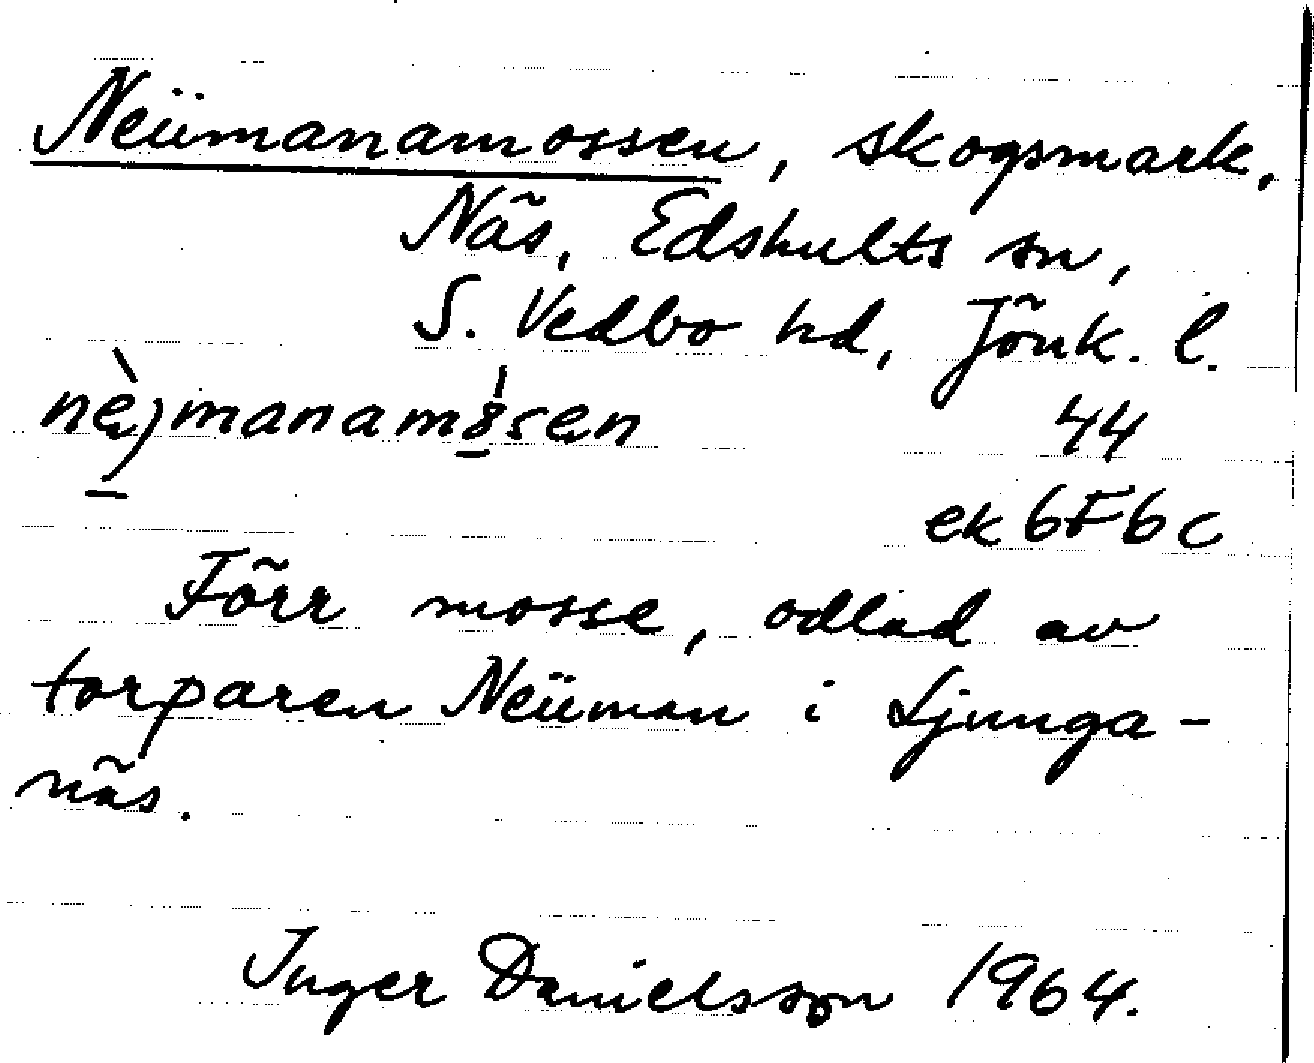 Neümanamossen, skogsmark,
Näs, Edshults sn,
S. Vedbo hd, Jönk. l.
nè̱jmanamòsen 44
ek 6F6c
Förr mosse, odlad av
torparen Neüman i Ljunga-
näs.
Inger Danielsson 1964.